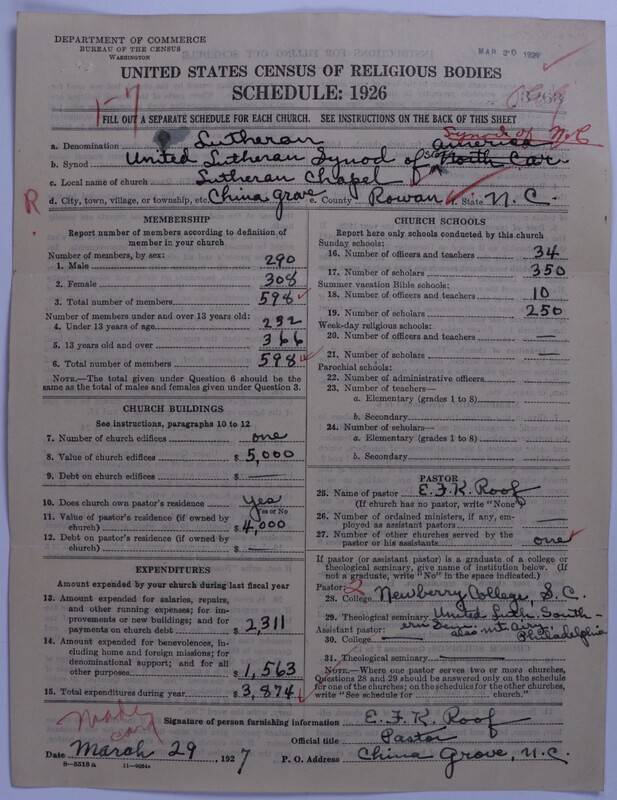 DEPARTMENT OF COMMERCE
BUREAU OF THE CENSUS
WASHINGTON
MAR 30 1927
UNITED STATES CENSUS OF RELIGIOUS BODIES
SCHEDULE: 1926
1-7
FILL OUT A SEPARATE SCHEDULE FOR EACH CHURCH. SEE INSTRUCTIONS ON THE BACK OF THIS SHEET
Synod of N.C
a. Denomination Lutheran America
b. Synod United Lutheran Synod of North Car
c. Local name of church Lutheran Chapel
R. d. City, town, village, or township, etc. China Grove e. County Rowan f. State N.C.
MEMBERSHIP
Report number of members according to definition of member in your church
Number of members, by sex:
1. Male 290
2. Female 308
3. Total number of members 598
Number of members under and over 13 years old:
4. Under 13 years of age 232
5. 13 years old and over 366
6. Total number of members 598
NOTE.—The total given under Question 6 should be the
same as the total of males and females given under Question 3.
CHURCH BUILDINGS
See instructions, paragraphs 10 to 12
7. Number of church edifices one
8. Value of church edifices $ 5,000
9. Debt on church edifices $ —
10. Does church own pastor's residence yes
Yes or No
11. Value of pastor's residence (if owned by
church) $ 4,000
12. Debt on pastor's residence (if owned by
church) $ —
EXPENDITURES
Amount expended by your church during last fiscal year
13. Amount expended for salaries, repairs,
and other running expenses; for im-
provements or new buildings; and for
payments on church debt $ 2,311
14. Amount expended for benevolences, in-
cluding home and foreign missions; for
denominational support; and for all
other purposes $ 1,563
15. Total expenditures during year $ 3,874
CHURCH SCHOOLS
Report here only schools conducted by this church
Sunday schools:
16. Number of officers and teachers 34
17. Number of scholars 350
Summer vacation Bible schools:
18. Number of officers and teachers 10
19. Number of scholars 250
Week-day religious schools:
20. Number of officers and teachers —
21. Number of scholars —
Parochial schools:
22. Number of administrative officers
23. Number of teachers—
a. Elementary (grades 1 to 8)
b. Secondary
24. Number of scholars—
a. Elementary (grades 1 to 8)
b. Secondary
PASTOR
25. Name of pastor E.F.K. Roof
(If church has no pastor, write "None")
26. Number of ordained ministers, if any, em-
ployed as assistant pastors —
27. Number of other churches served by the
pastor or his assistants one
If pastor (or assistant pastor) is a graduate of a college or
theological seminary, give name of institution below. (If
not a graduate, write "No" in the space indicated.)
Pastor: 2
28. College Newberry College, S.C.
29. Theological seminary United Luth. South-
ern Sem. also Mt. Airy, Philadelphia
Assistant pastor:
30. College —
31. Theological seminary —
NOTE.—Where one pastor serves two or more churches,
Questions 28 and 29 should be answered only on the schedule
for one of the churches; on the schedules for the other churches,
write "See schedule for church."
Made card
Signature of person furnishing information E.F.K. Roof
Official title Pastor
Date March 29, 1927 P. O. Address China Grove, N.C.
8—5518 a